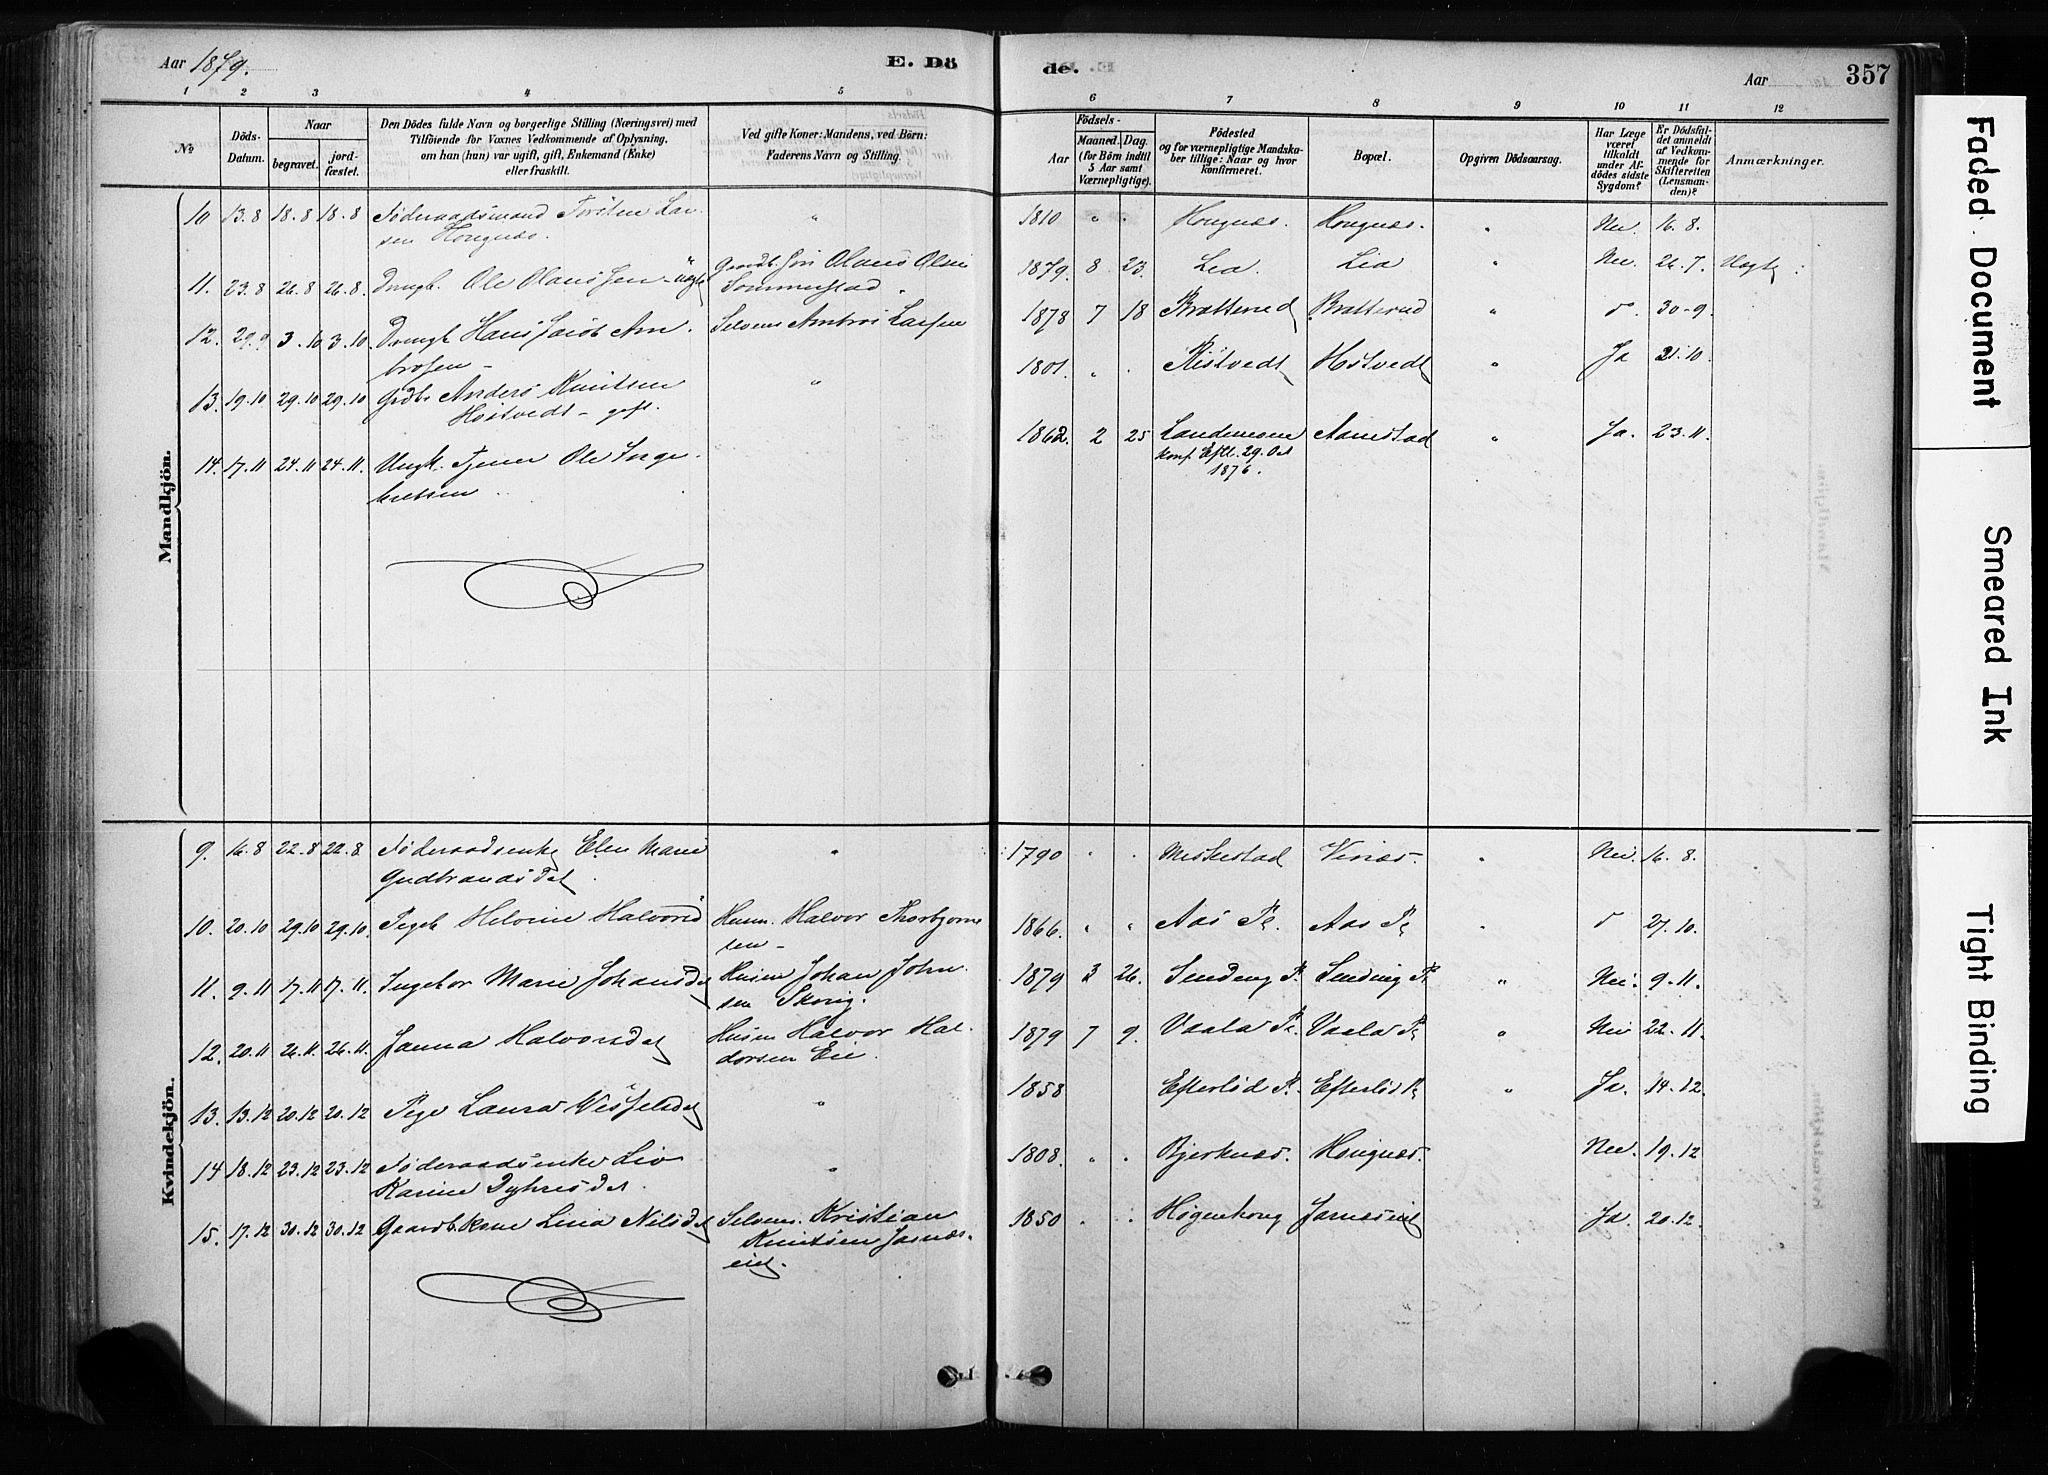 Aar 1879.
E. Dö
de.
Aar
357
1 2 3 4 5
6 7 8 9 10 11 12
No
Döds-
Datum.
Naar
begravet.
jord-
fæstet.
Den Dödes fulde Navn og borgerlige Stilling (Næringsvei) med
Tilföiende for Voxnes Vedkommende af Oplysning,
om han (hun) var ugift, gift, Enkemand (Enke)
eller fraskilt.
Ved gifte Koner: Mandens, ved Börn:
Faderens Navn og Stilling.
Födsels-
Aar
Maaned. Dag.
(for Börn indtil
5 Aar samt
Værnepligtige).
Födested
og for værnepligtige Mandska-
ber tillige: Naar og hvor
konfirmeret.
Bopæl.
Opgiven Dödsaarsag.
Har Læge
været
tilkaldt
under Af-
dödes sidste
Sygdom?
Er Dödsfal-
det anmeldt
af Vedkom-
mende for
Skifteretten
(Lensman-
den)?
Anmærkninger.
Mandkjön.
10 13.8 18.8 18.8 Föderaadsmand Torsten Lar-
sen Hougnæs.
" 1810 " . Hougnæs. Hougnæs. " Nei. 16.8.
11. 23.8 26.8 26.8. Drengb. Ole Olaussen - uægte
Gaardb. Sön Olaus Olsen
Sommerstad
1879. 8 23. Lia. Lia " Nei. 26.7. Uægte
12. 29.9 3.10 3.10 Drengb Hans Jacob Am-
brosen -
Selveier Ambros Larsen
1878 7 18 Bratterud Bratterud " 30-9.
13. 19.10 29.10 29.10 Gdbr Anders Knutsen
Hostvedt - gift.
" 1801. " . Ristvedt Hostvedt " Ja 21.10.
14. 17.11 24.11 24.11. Ungk. Tjener Ole Inge-
bretsen
1862. 2 25 Landemoen Aamstad " Ja. 23.11.
konf. Eftl. 29. Oct
1876.
Kvindekjön.
9. 16.8 22.8 22.8 Föderaadsenke Elen Marie
Gudbrandsdat.
" 1790 " " Miskestad " Nei. 16.8.
10. 20.10 29.10 29.10. Pigeb Helvine Halvorsd
Husm. Halvor Thorbjörn-
sen -
1866. " " Aas Pl. Aas Pl 27.10.
11. 9.11 17.11 17.11. Ingebor Marie Johansdat
Husm Johan John-
sen
1879 3 26. " Nei. 9.11.
12. 20.11 26.11. 26.11. Janna Halvorsdat
Husm Halvor Hal-
dorsen Eie.
1879 7 9. Vaala Pl. Vaala Pl " Nei 22.11.
13. 13.12 20.12 20.12 Pige Laura Wesselsdat
" 1858 Efterlöd Pl. Efterlöd Pl " Ja. 14.12.
14 18.12 23.12 23.12 Föderaadsenke Liv
Karine Dyhresdat.
" 1808. " . Bjerknæs. Hougnæs. Nei. 19.12
15. 17.12 30.12 30.12 Gaardb. Kone Lina Nilsdat
Selveier. Kristian
Knutsen Jarnæs-
eiet.
1850 " . Jarnæseiet Ja. 20.12.
Faded Document
Smeared Ink
Tight Binding